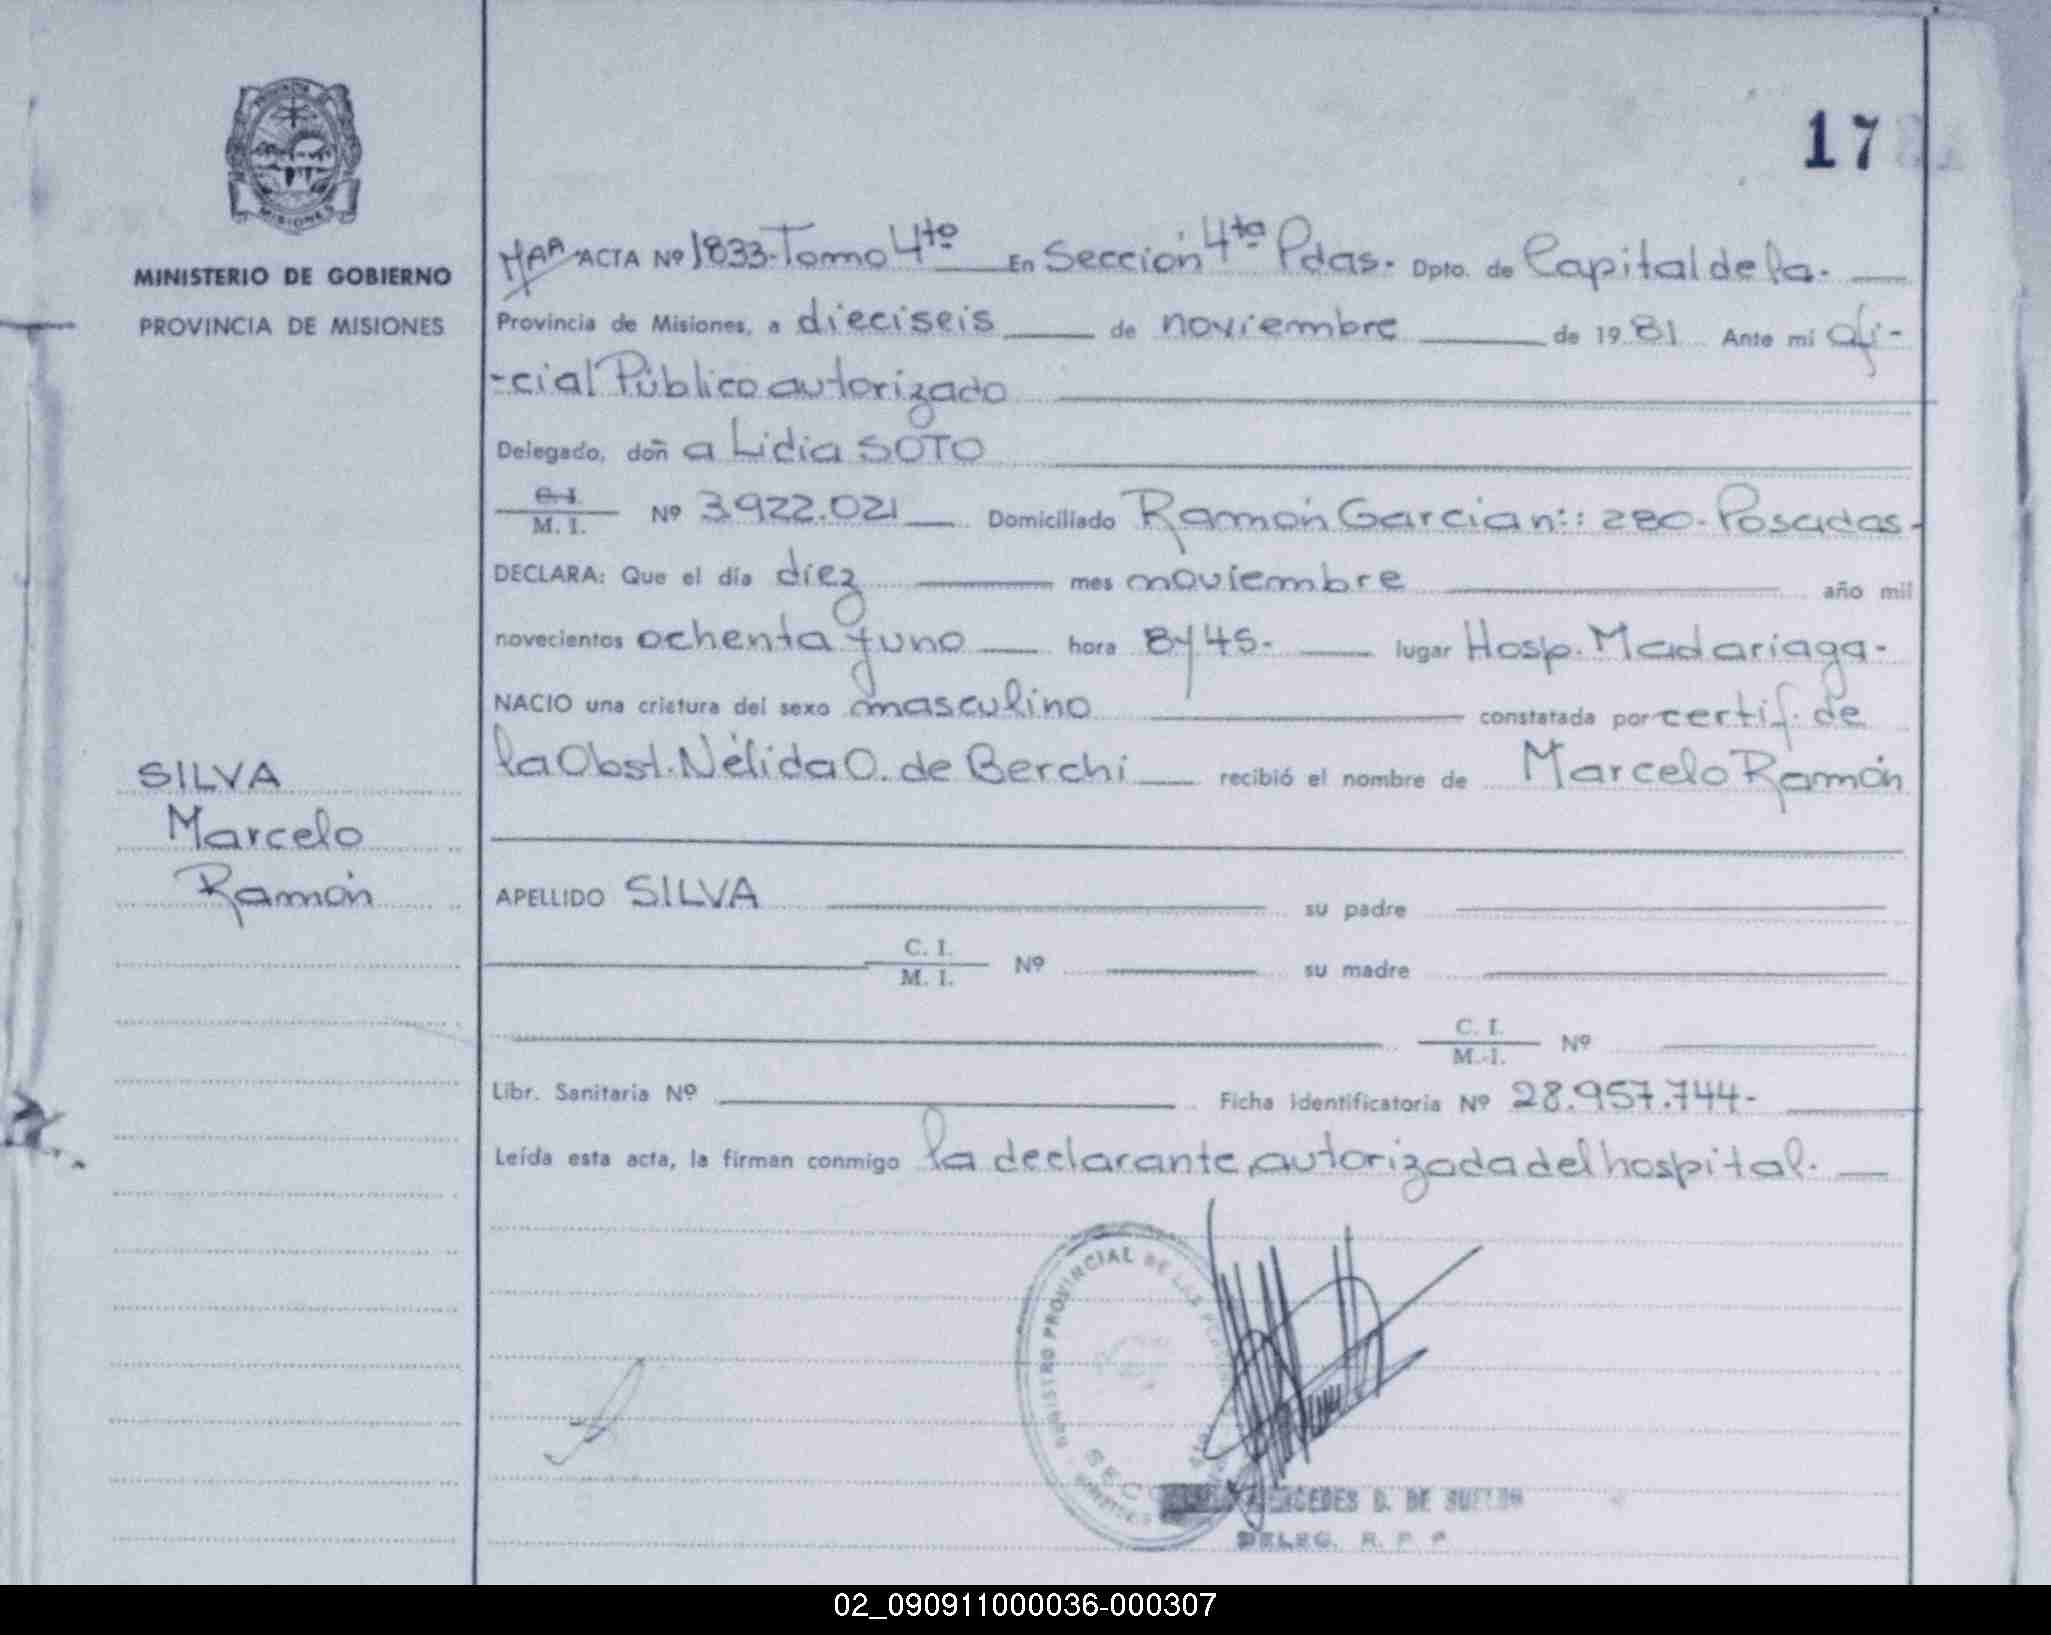 17
PROVINCIA DE
MISIONES
MINISTERIO DE GOBIERNO
PROVINCIA DE MISIONES
SILVA
Marcelo
Ramón
ACTA Nº 1833-Tomo 4to En Sección 4ta Pdas. Dpto. de Capital de la.
Provincia de Misiones, a dieciseis de noviembre de 1981 Ante mi ofi-
-cial Público autorizado
Delegado, doña Lidia SOTO
C. I. / M. I. Nº 3.922.021 Domiciliado Ramón Garcia n:: 280. Posadas.
DECLARA: Que el día diez mes noviembre año mil
novecientos ochenta y uno hora 8 y 45. lugar Hosp. Madariaga.
NACIO una criatura del sexo masculino constatada por certif. de
la Obst. Nélida O. de Berchi recibió el nombre de Marcelo Ramón
APELLIDO SILVA su padre
C. I. / M. I. Nº su madre
C. I. / M. I. Nº
Libr. Sanitaria Nº Ficha identificatoria Nº 28.957.744-
Leída esta acta, la firman conmigo la declarante, autorizada del hospital.
REGISTRO PROVINCIAL DE LAS
DELEG. R. P. P.
02_090911000036-000307